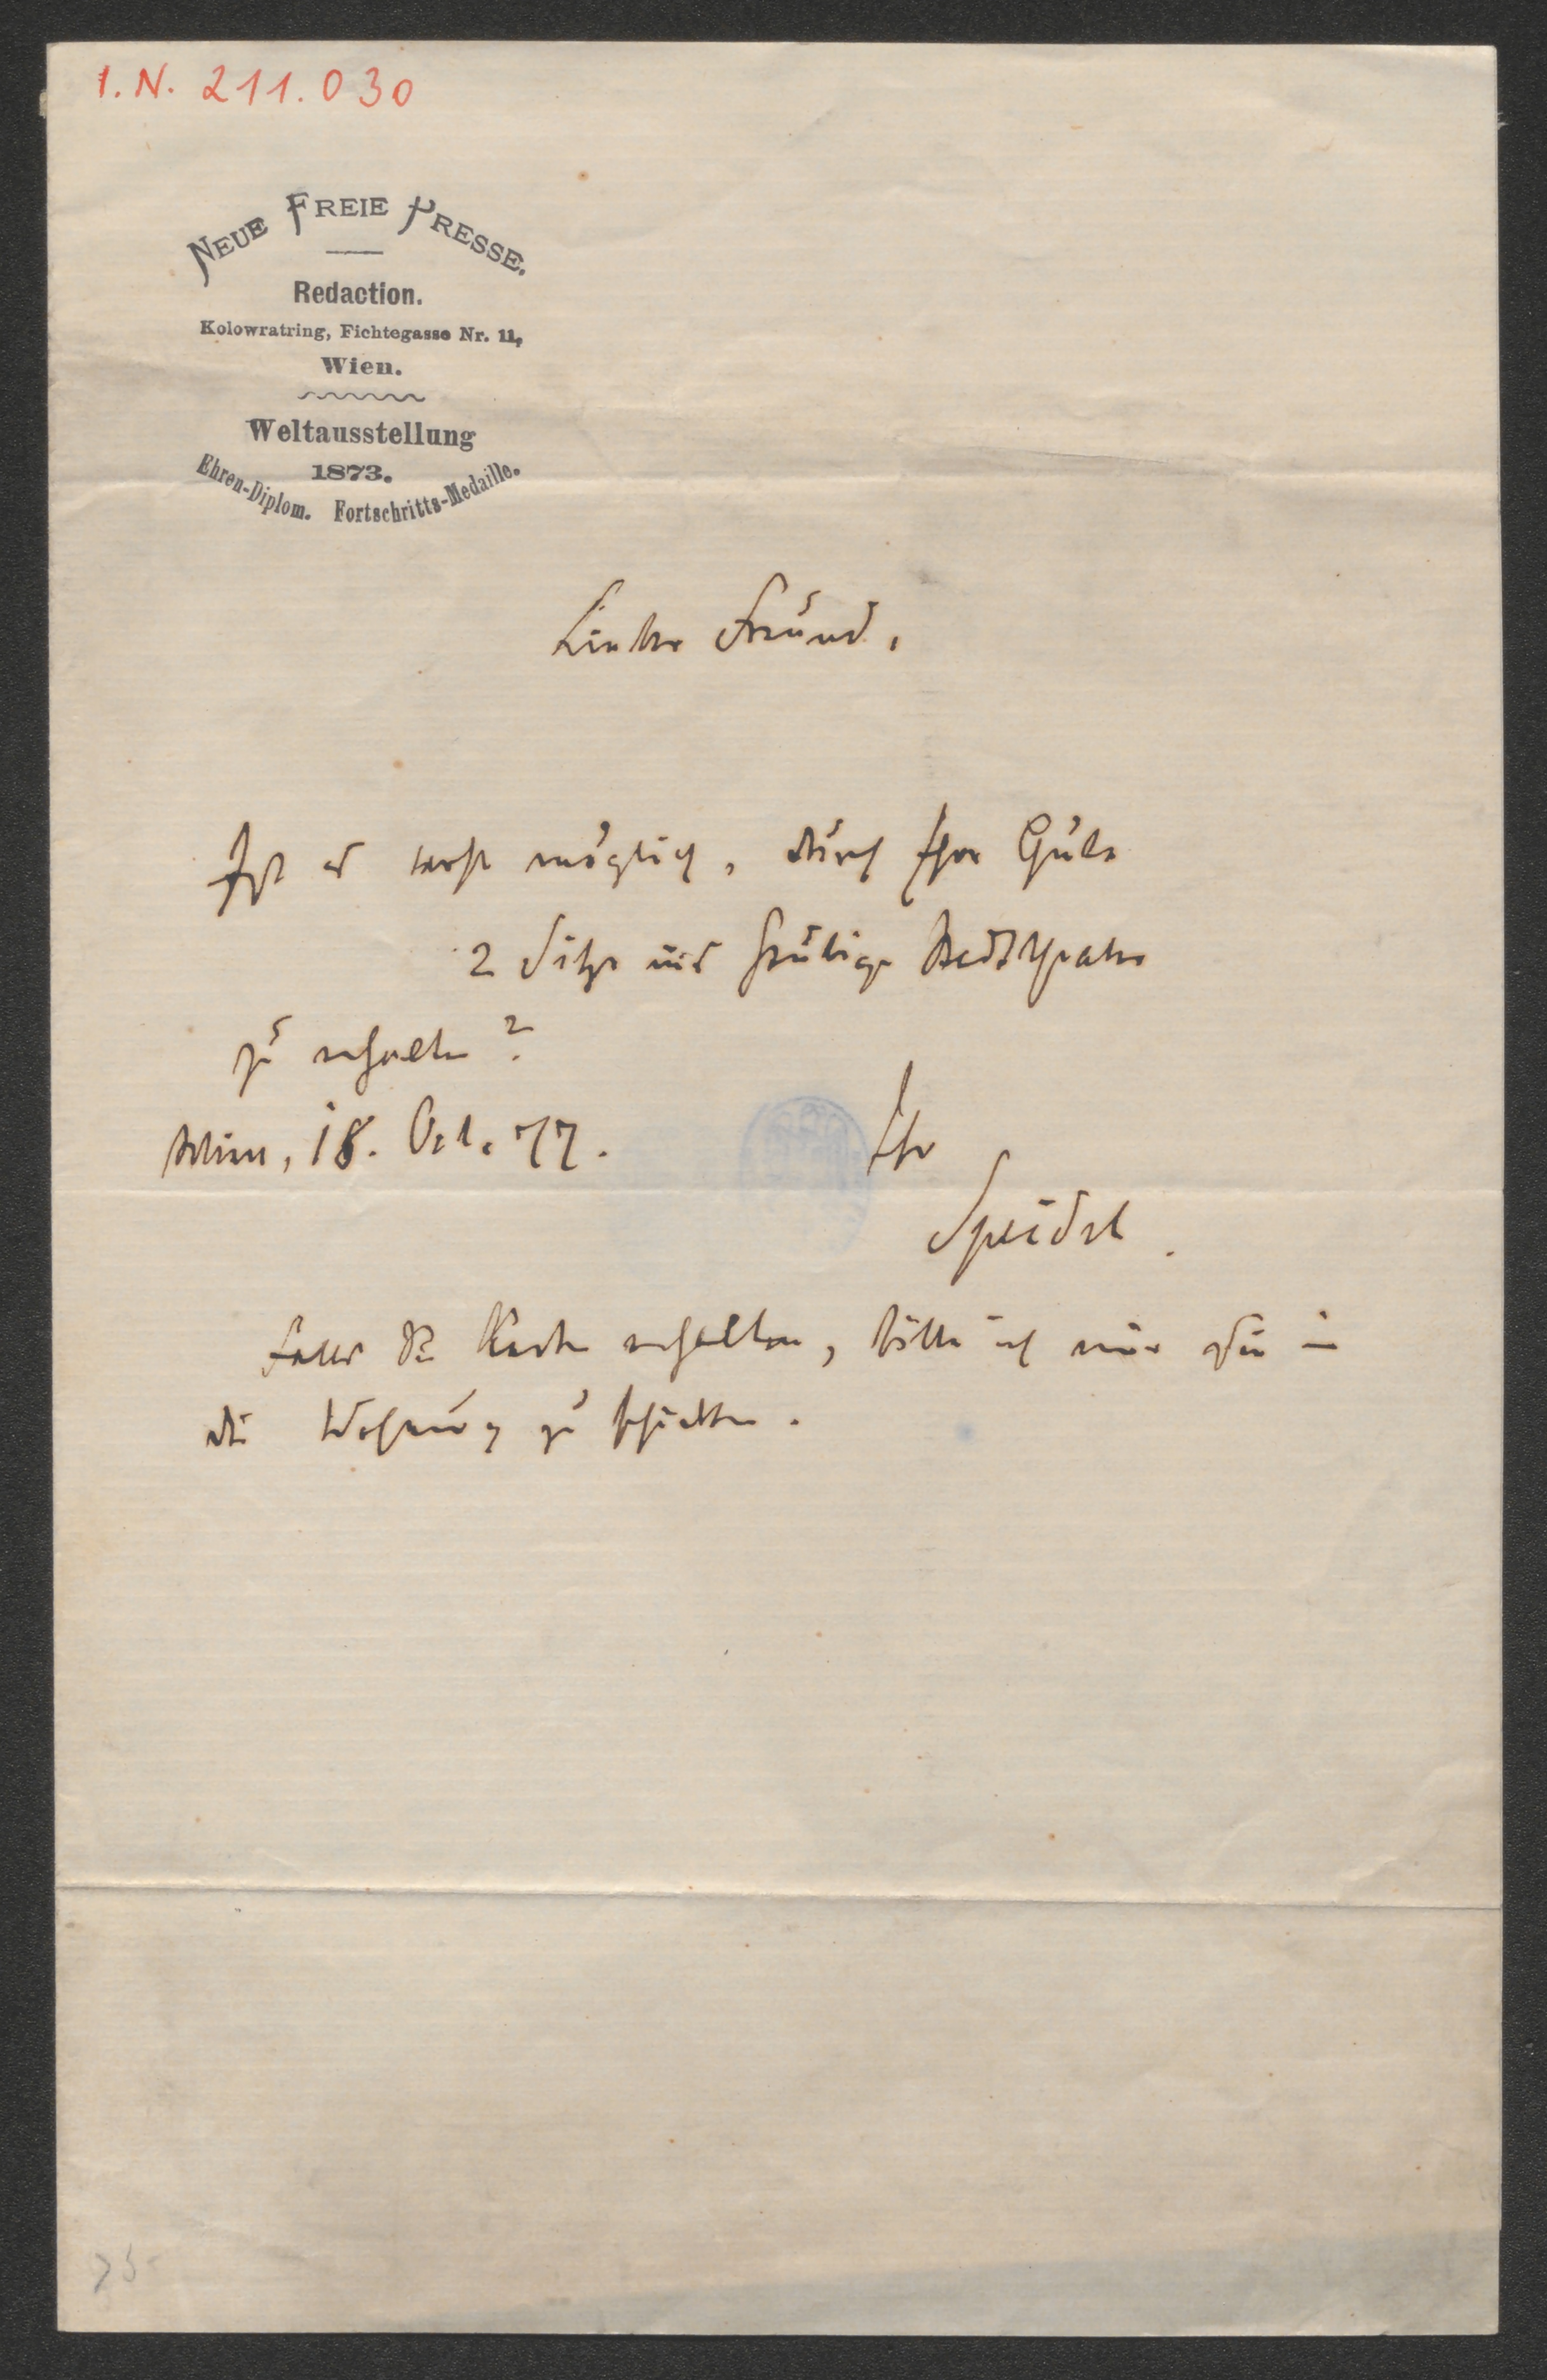 I.N. 211.030
NEUE FREIE PRESSE.
Redaction.
Kolowratring, Fichtegasse Nr. 11,
Wien.
Weltausstellung
1873.
Ehren-Diplom. Fortschritts-Medaille.
Lieber Freund,
Ist es wohl möglich, durch Ihre Güte
2 Sitze ins heutige Stadttheater
zu erhalten?
Wien, 18. Oct. 77.
Ihr
Speidel.
Falls Sie Karten erhalten, bitte ich mir sie in
die Wohnung zu schicken.